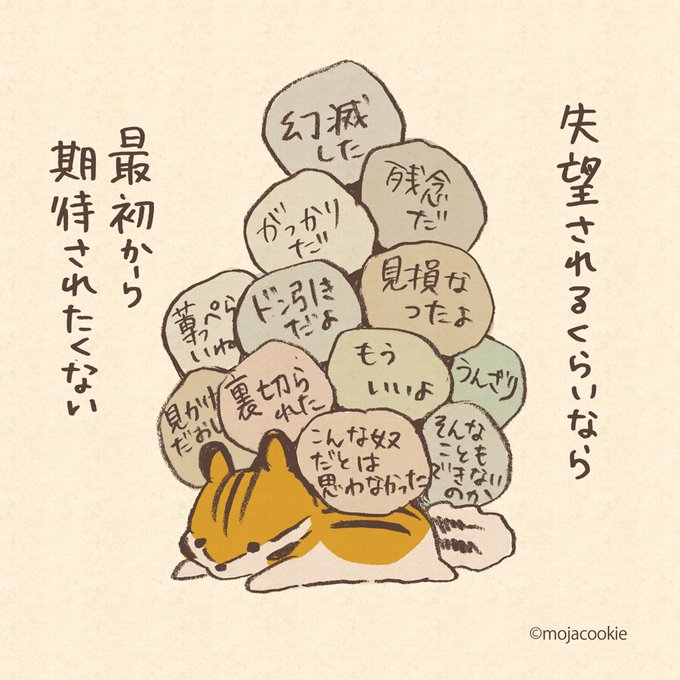 失望されるくらいなら
最初から
期待されたくない
幻滅
した
残念
だ
がっかり
だ
見損な
ったよ
ドン引き
だよ
薄っぺら
いね
もう
いいよ
うんざり
見かけ
だおし
裏切ら
れた
こんな奴
だとは
思わなかった
そんな
ことも
できない
のか
©mojacookie